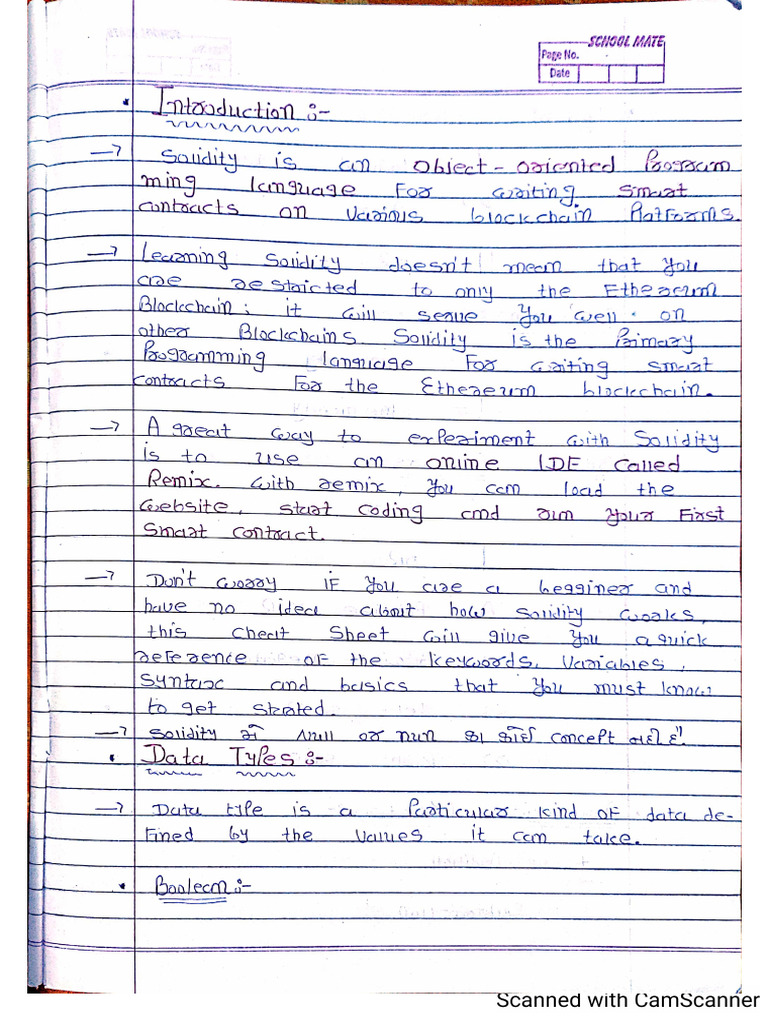 SCHOOL MATE
Page No.
Date
• Introduction :-
→ Solidity is an object-oriented Program
ming language for writing smart
contracts on various blockchain Platforms.
→ Learning Solidity doesn't mean that you
are restricted to only the Ethereum
Blockchain; it will serve you well on
other Blockchains. Solidity is the Primary
Programming language for writing smart
contracts for the Ethereum blockchain.
→ A great way to experiment with Solidity
is to use an online IDE called
Remix. With remix, you can load the
website, start coding and run your First
Smart contract.
→ Don't worry if you are a begginer and
have no idea about how solidity works,
this cheat sheet will give you a quick
reference of the keywords, variables,
syntax and basics that you must know
to get strated.
→ Solidity में or का कोई concept नहीं है!
• Data Types :-
→ Data type is a Particular kind of data de-
fined by the values it can take.
• Boolean :-
Scanned with CamScanner